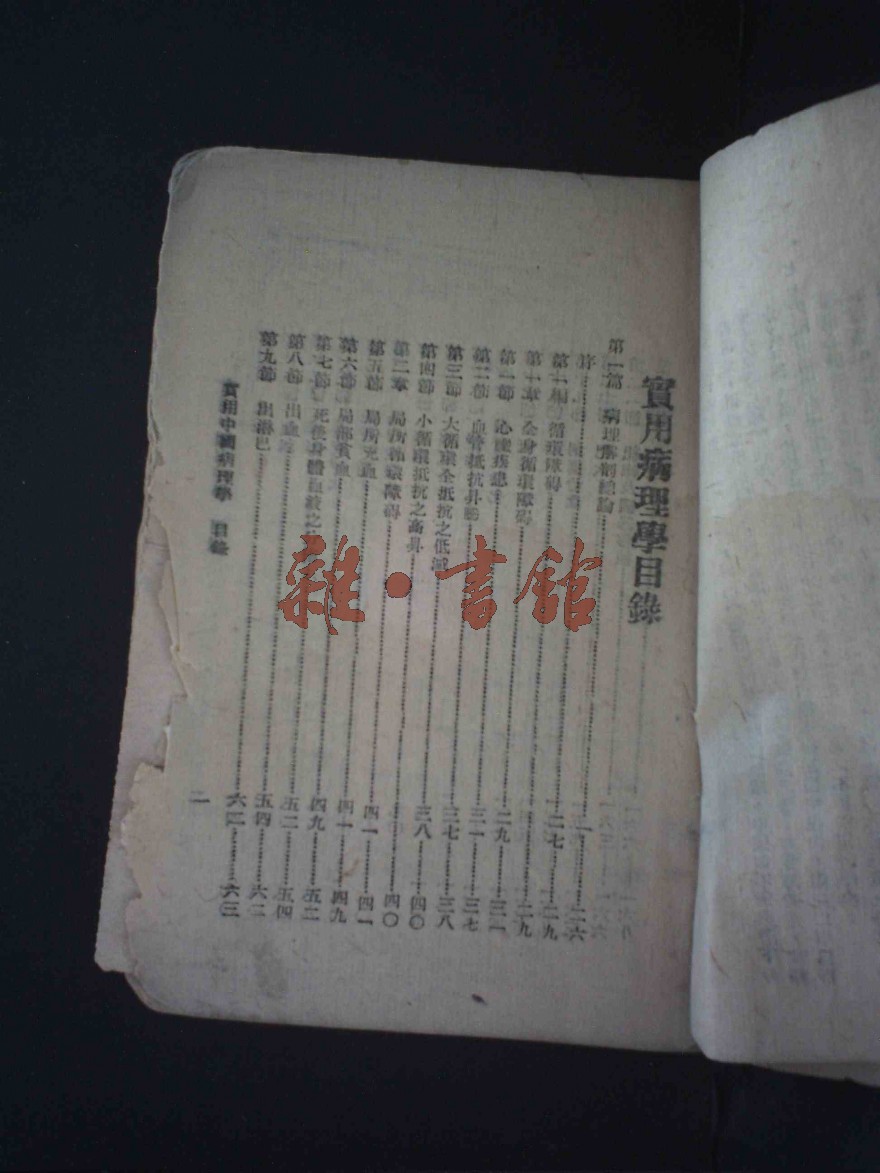 實用病理學目錄
第一篇 病理解剖總論
序 一 二六
第一編 循環障碍 二七 二九
第一章 全身循環障碍 二九
第一節 心臟疾患 二九 三一
第二節 血管抵抗昇 三一 三七
第三節 大循環全抵抗之低減 三七 三八
第四節 小循環抵抗之高昇 三八 四〇
第二章 局所循環障碍 四〇
第五節 局所充血 四一 四一
第六節 局部貧血 四一 四九
第七節 死後身體血液之 四九 五二
第八節 出血 五二 五四
第九節 出淋巴 五四 六二
六二 六三
實用中國病理學 目錄 二
雜·書館